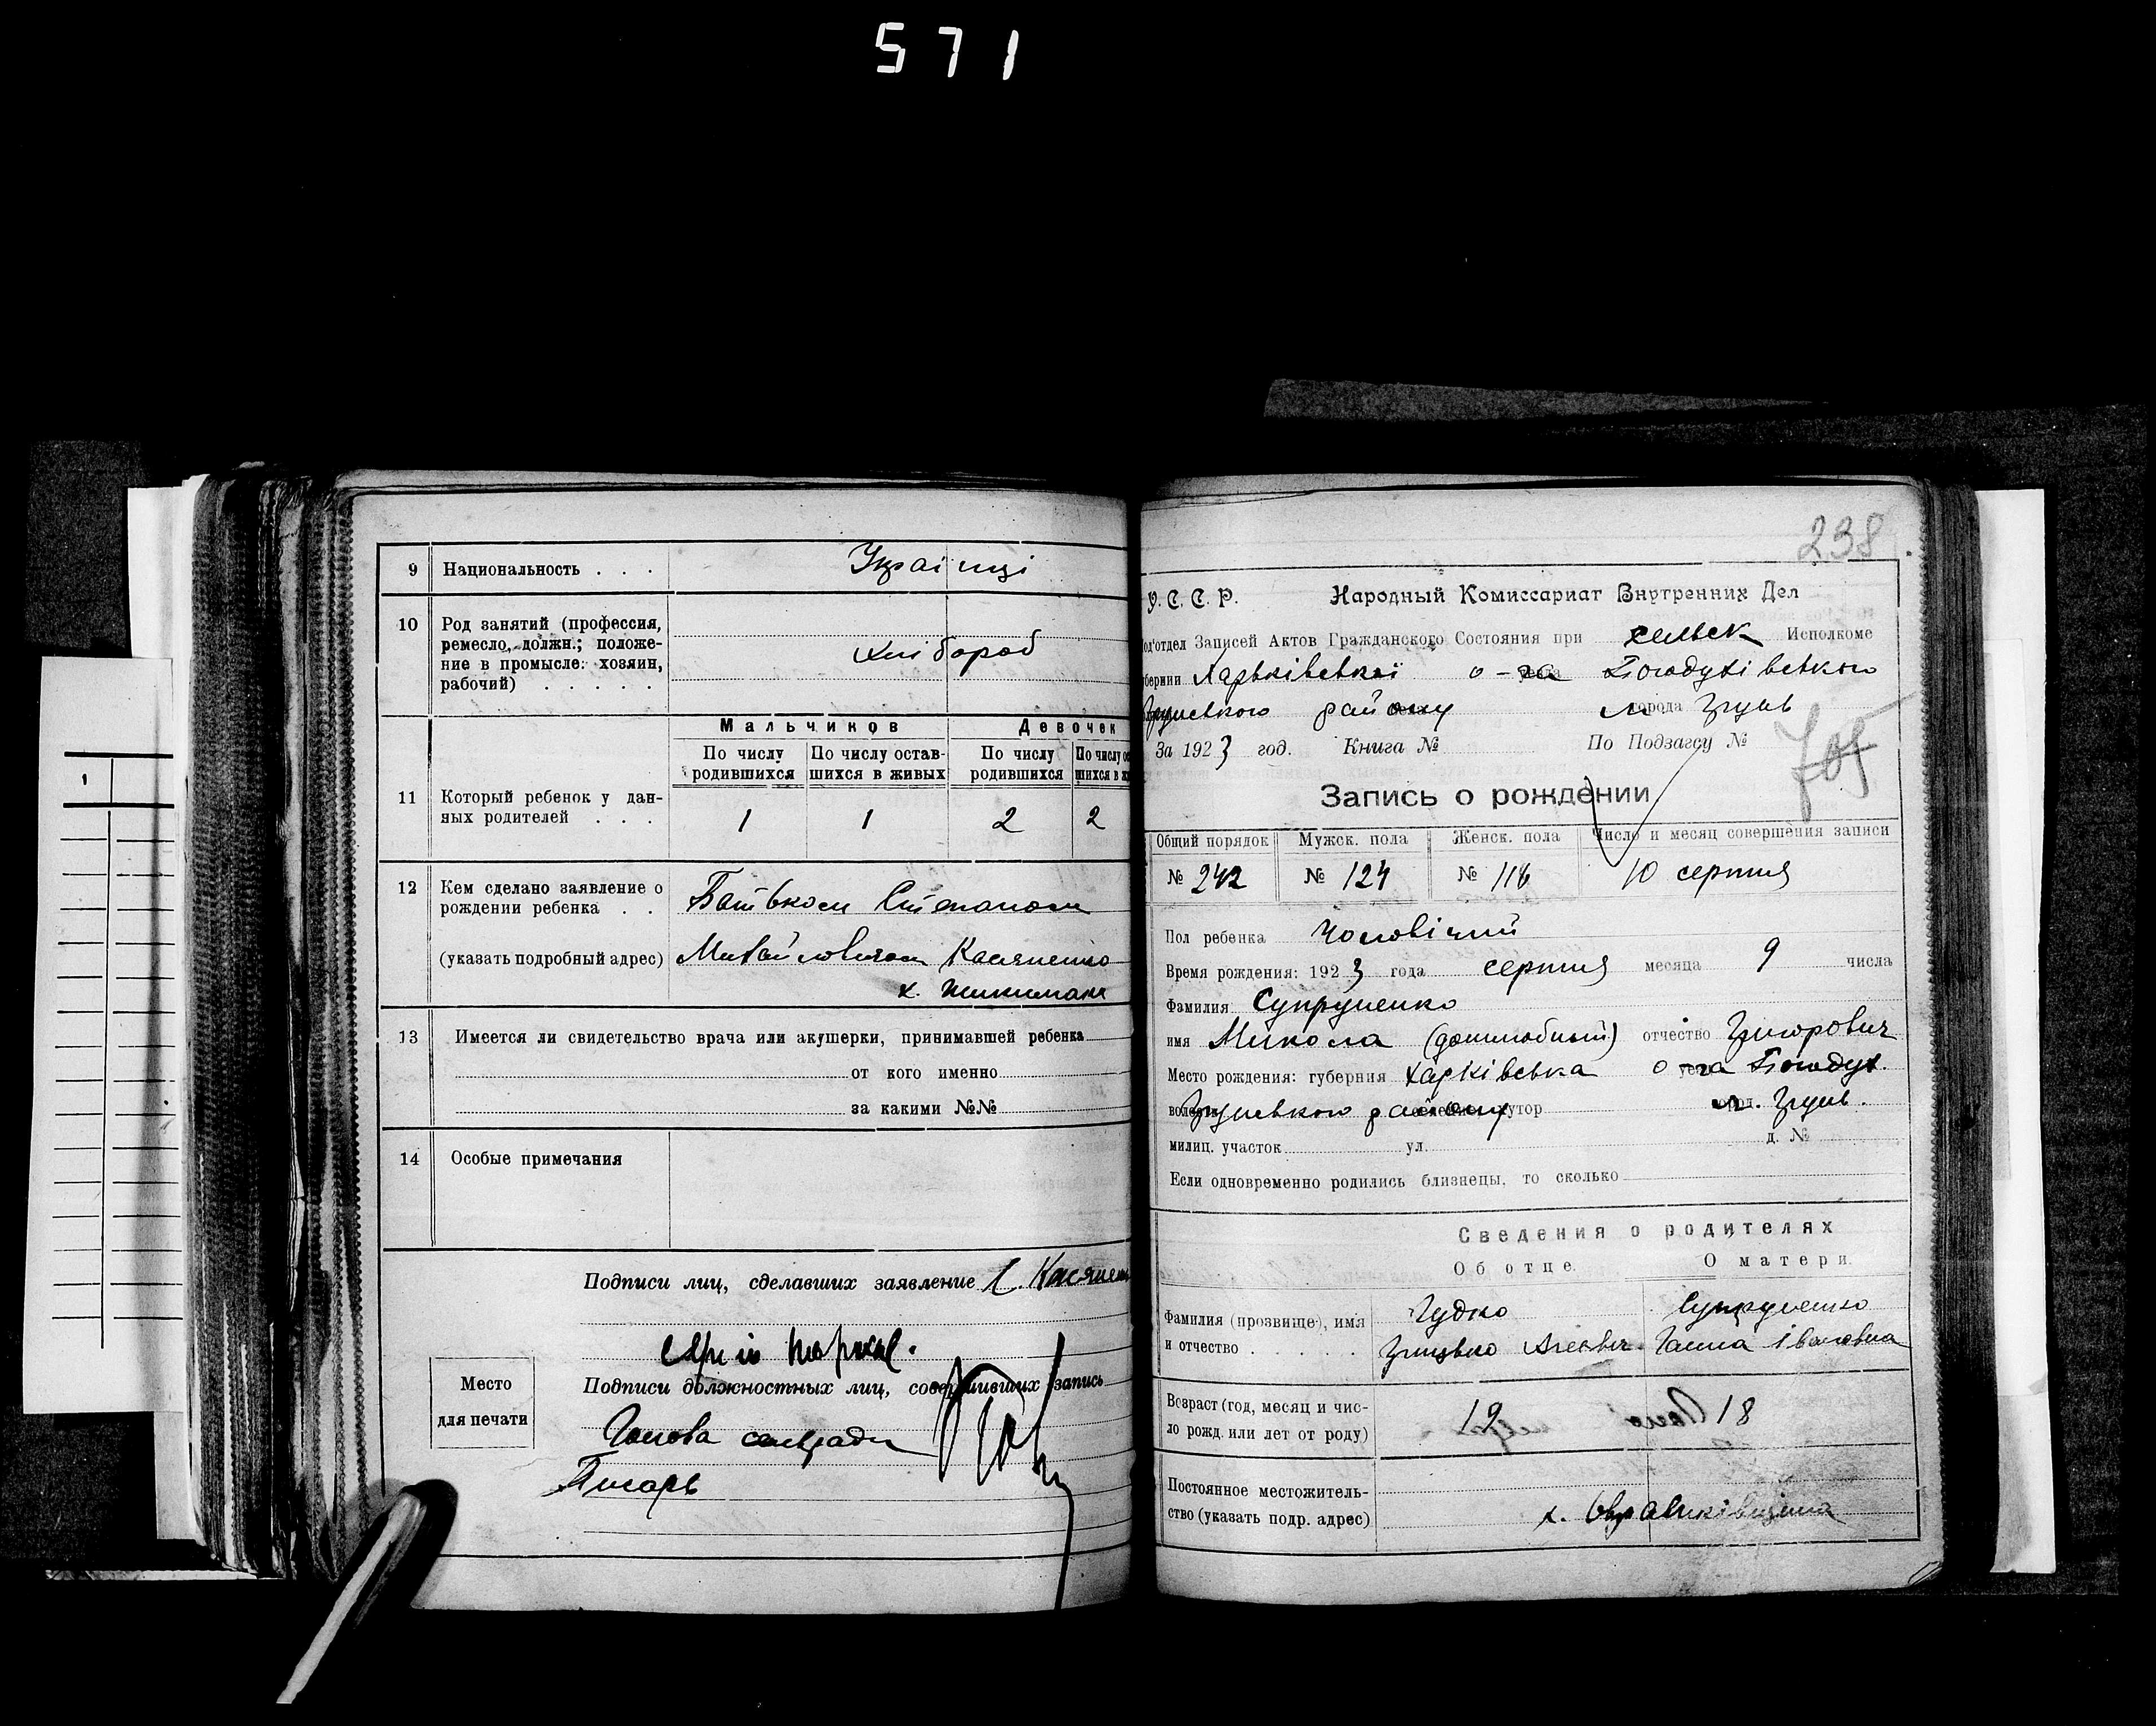 571
9 Национальность . . . Українці
10 Род занятий (профессия,
ремесло, должн.; положе-
ние в промысле: хозяин,
рабочий) . . . . . хлібороб
Мальчиков Девочек
По числу родившихся По числу остав-шихся в живых По числу родившихся По числу ос
11 Который ребенок у дан-
ных родителей . . . 1 1 2 2
12 Кем сделано заявление о
рождении ребенка . . Батьком Степаном
(указать подробный адрес) Михайловичом Касяненко
х.
13 Имеется ли свидетельство врача или акушерки, принимавшей ребенка
от кого именно
за какими №№
14 Особые примечания
Подписи лиц, сделавших заявление С. Касянен
Место
для печати
Подписи должностных лиц, совершивших запись
Голова сельради
Писарь
1
238
У. С. С. Р. Народный Комиссариат Внутренних Дел
од'отдел Записей Актов Гражданского Состояния при сельск Исполкоме
бернии Харьківської о-га Богодухівського
району м. города Згунь
За 1923 год. Книга № По Подзагсу №
705
Запись о рождении
Общий порядок Мужск. пола Женск. пола Число и месяц совершения записи
№ 242 № 124 № 118 10 серпня
Пол ребенка Чоловічий
Время рождения: 1923 года серпня месяца 9 числа
Фамилия Супруненко
имя Микола (дошлюбный) отчество Григорович
Место рождения: губерния Харківська о-га Богодух.
волость району хутор город. м.
милиц. участок ул. д. №
Если одновременно родились близнецы, то сколько
Сведения о родителях
Об отце. О матери.
Фамилия (прозвище), имя Гудко Супруненко
и отчество . . . . . Грицько Ганна Івановна
Возраст (год, месяц и чис-
ло рожд. или лет от роду) 19 18
Постоянное местожитель-
ство (указать подр. адрес) х.